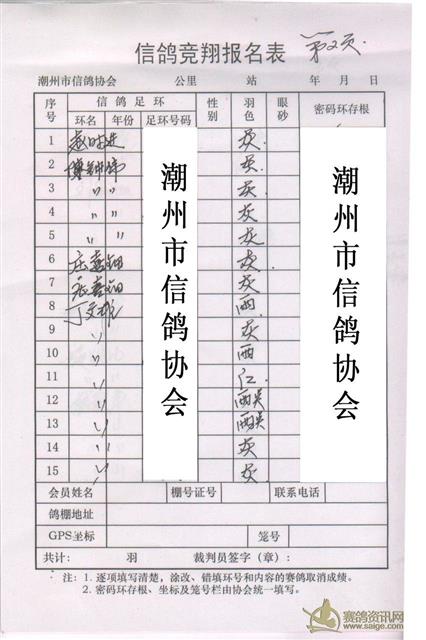 信鸽竞翔报名表 第2页.
潮州市信鸽协会 公里 站 年 月 日
序号 信鸽足环 性别 羽色 眼砂 密码环存根
环名 年份 足环号码
1 灰
2 灰
3 〃 〃 灰
4 〃 〃 灰
5 〃 〃 灰
6 灰
7 灰
8 丁文雄 雨
9 〃 灰
10 〃 雨
11 〃 红
12 〃 雨
13 〃 雨
14 〃 灰
15 〃 灰
潮州市信鸽协会
潮州市信鸽协会
会员姓名 棚号证号 联系电话
鸽棚地址
GPS坐标 笼号
共计: 羽 裁判员签字(章):
注: 1. 逐项填写清楚,涂改、错填环号和内容的赛鸽取消成绩。
2. 密码环存根、坐标及笼号栏由协会统一填写。
赛鸽资讯网
www.saige.com